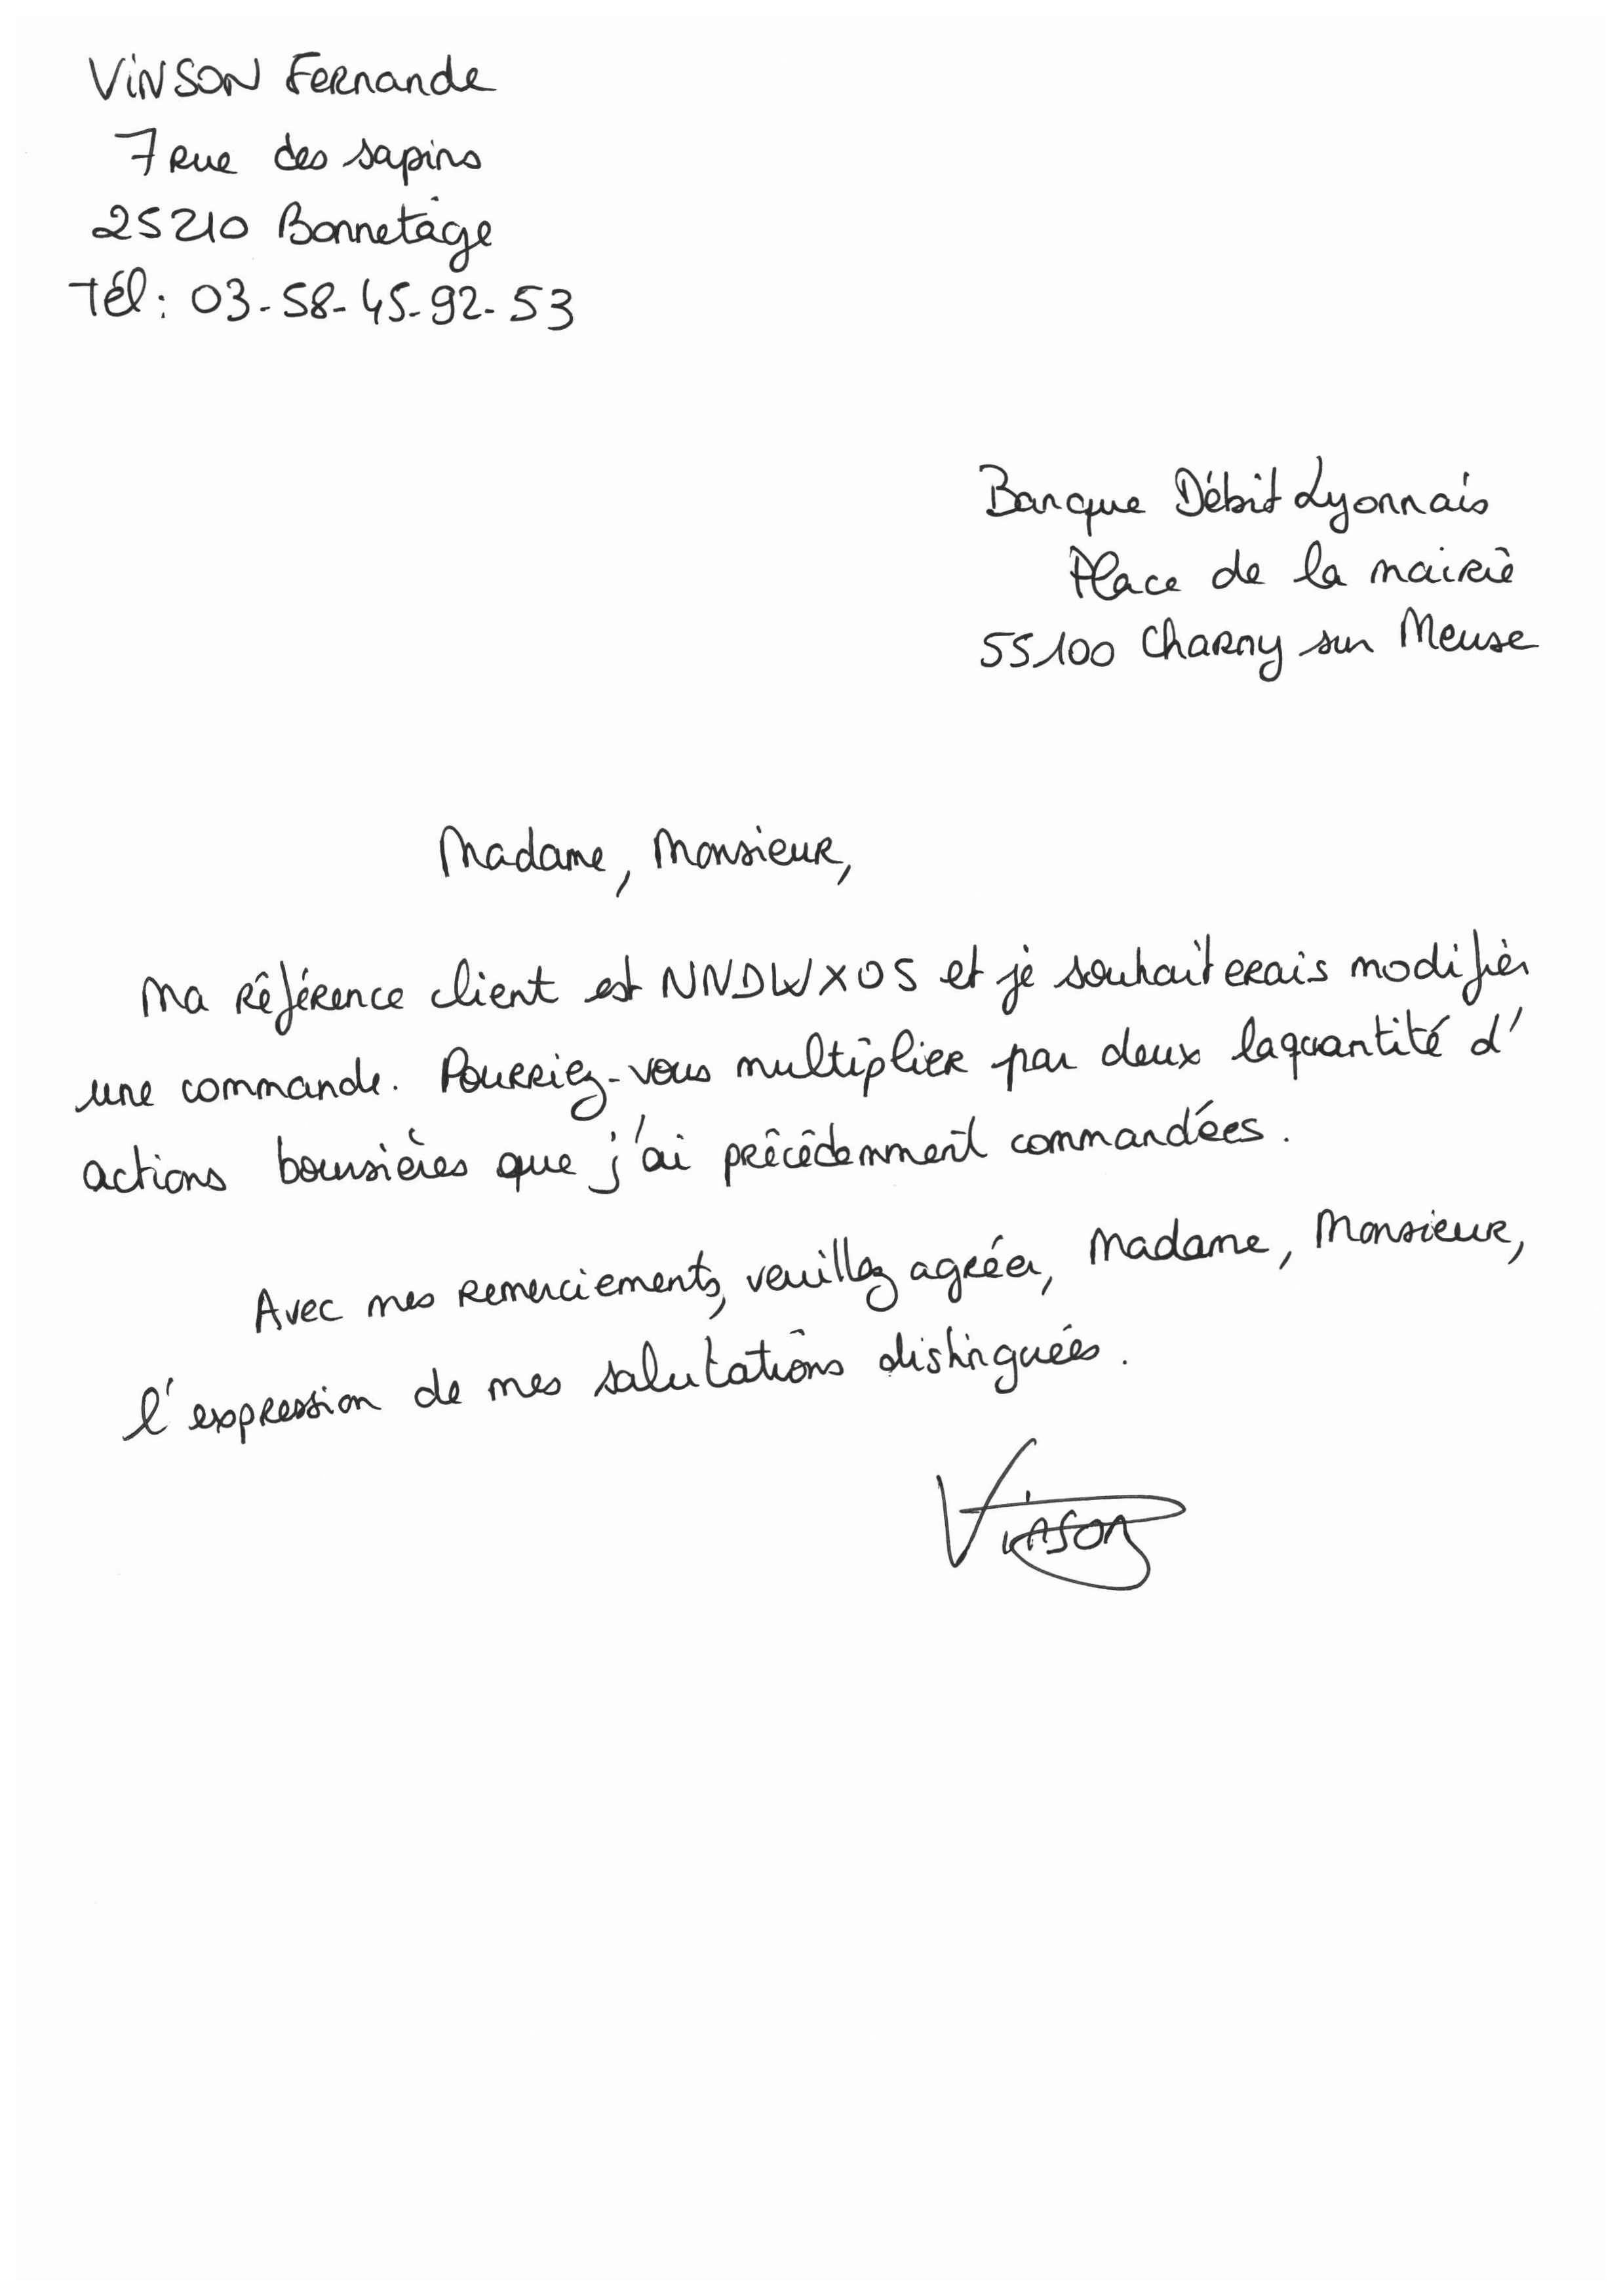 VINSON Fernande
7 rue des sapins
25210 Bonnetage
Tél : 03-58-45-92-53
Banque Débit Lyonnais
Place de la mairie
55100 Charny sur Meuse
Madame, Monsieur,
Ma référence client est NNDWXOS et je souhaiterais modifier
une commande. Pourriez-vous multiplier par deux la quantité d'
actions boursières que j'ai précédemment commandées.
Avec mes remerciements, veuillez agréer, Madame, Monsieur,
l'expression de mes salutations distinguées.
Vinson